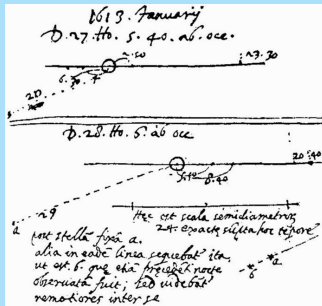 1613. January
D. 27. Ho. 5. 40. ab occ.
2.50 23.30
6.
D. 28. Ho. 6. ab occ
20:40
8.40
29
a
Hec est scala semidiametror
24. exacte sumta hoc tempore
post stellā fixā a.
alia in eadē linea sequebat ita,
ut est. b. que etiā precedēti nocte
observata fuit, sed videbat
remotiores inter se
b a